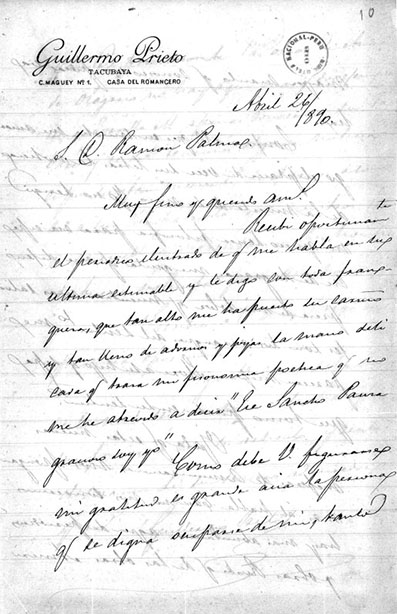 10
Guillermo Prieto
TACUBAYA
C. MAGUEY Nº 1. CASA DEL ROMANCERO
Abril 26/
890.
S. D. Ramón Palma
Muy fino y querido amº.
Recibí oportunamte
el periodico ilustrado de q me habla en su
ultima estimable y le digo con toda fran-
queza, que tan alto me ha puesto su cariño
y tan lleno de adornos y la mano deli
cada q traza mi fisonomia poetica q no
me he atrevido a decir "Ese Sancho Panza
gracioso soy yo" Como debe V. figurarse
mi gratitud es grande acia la persona
q se digna ocuparse de mi, tanto